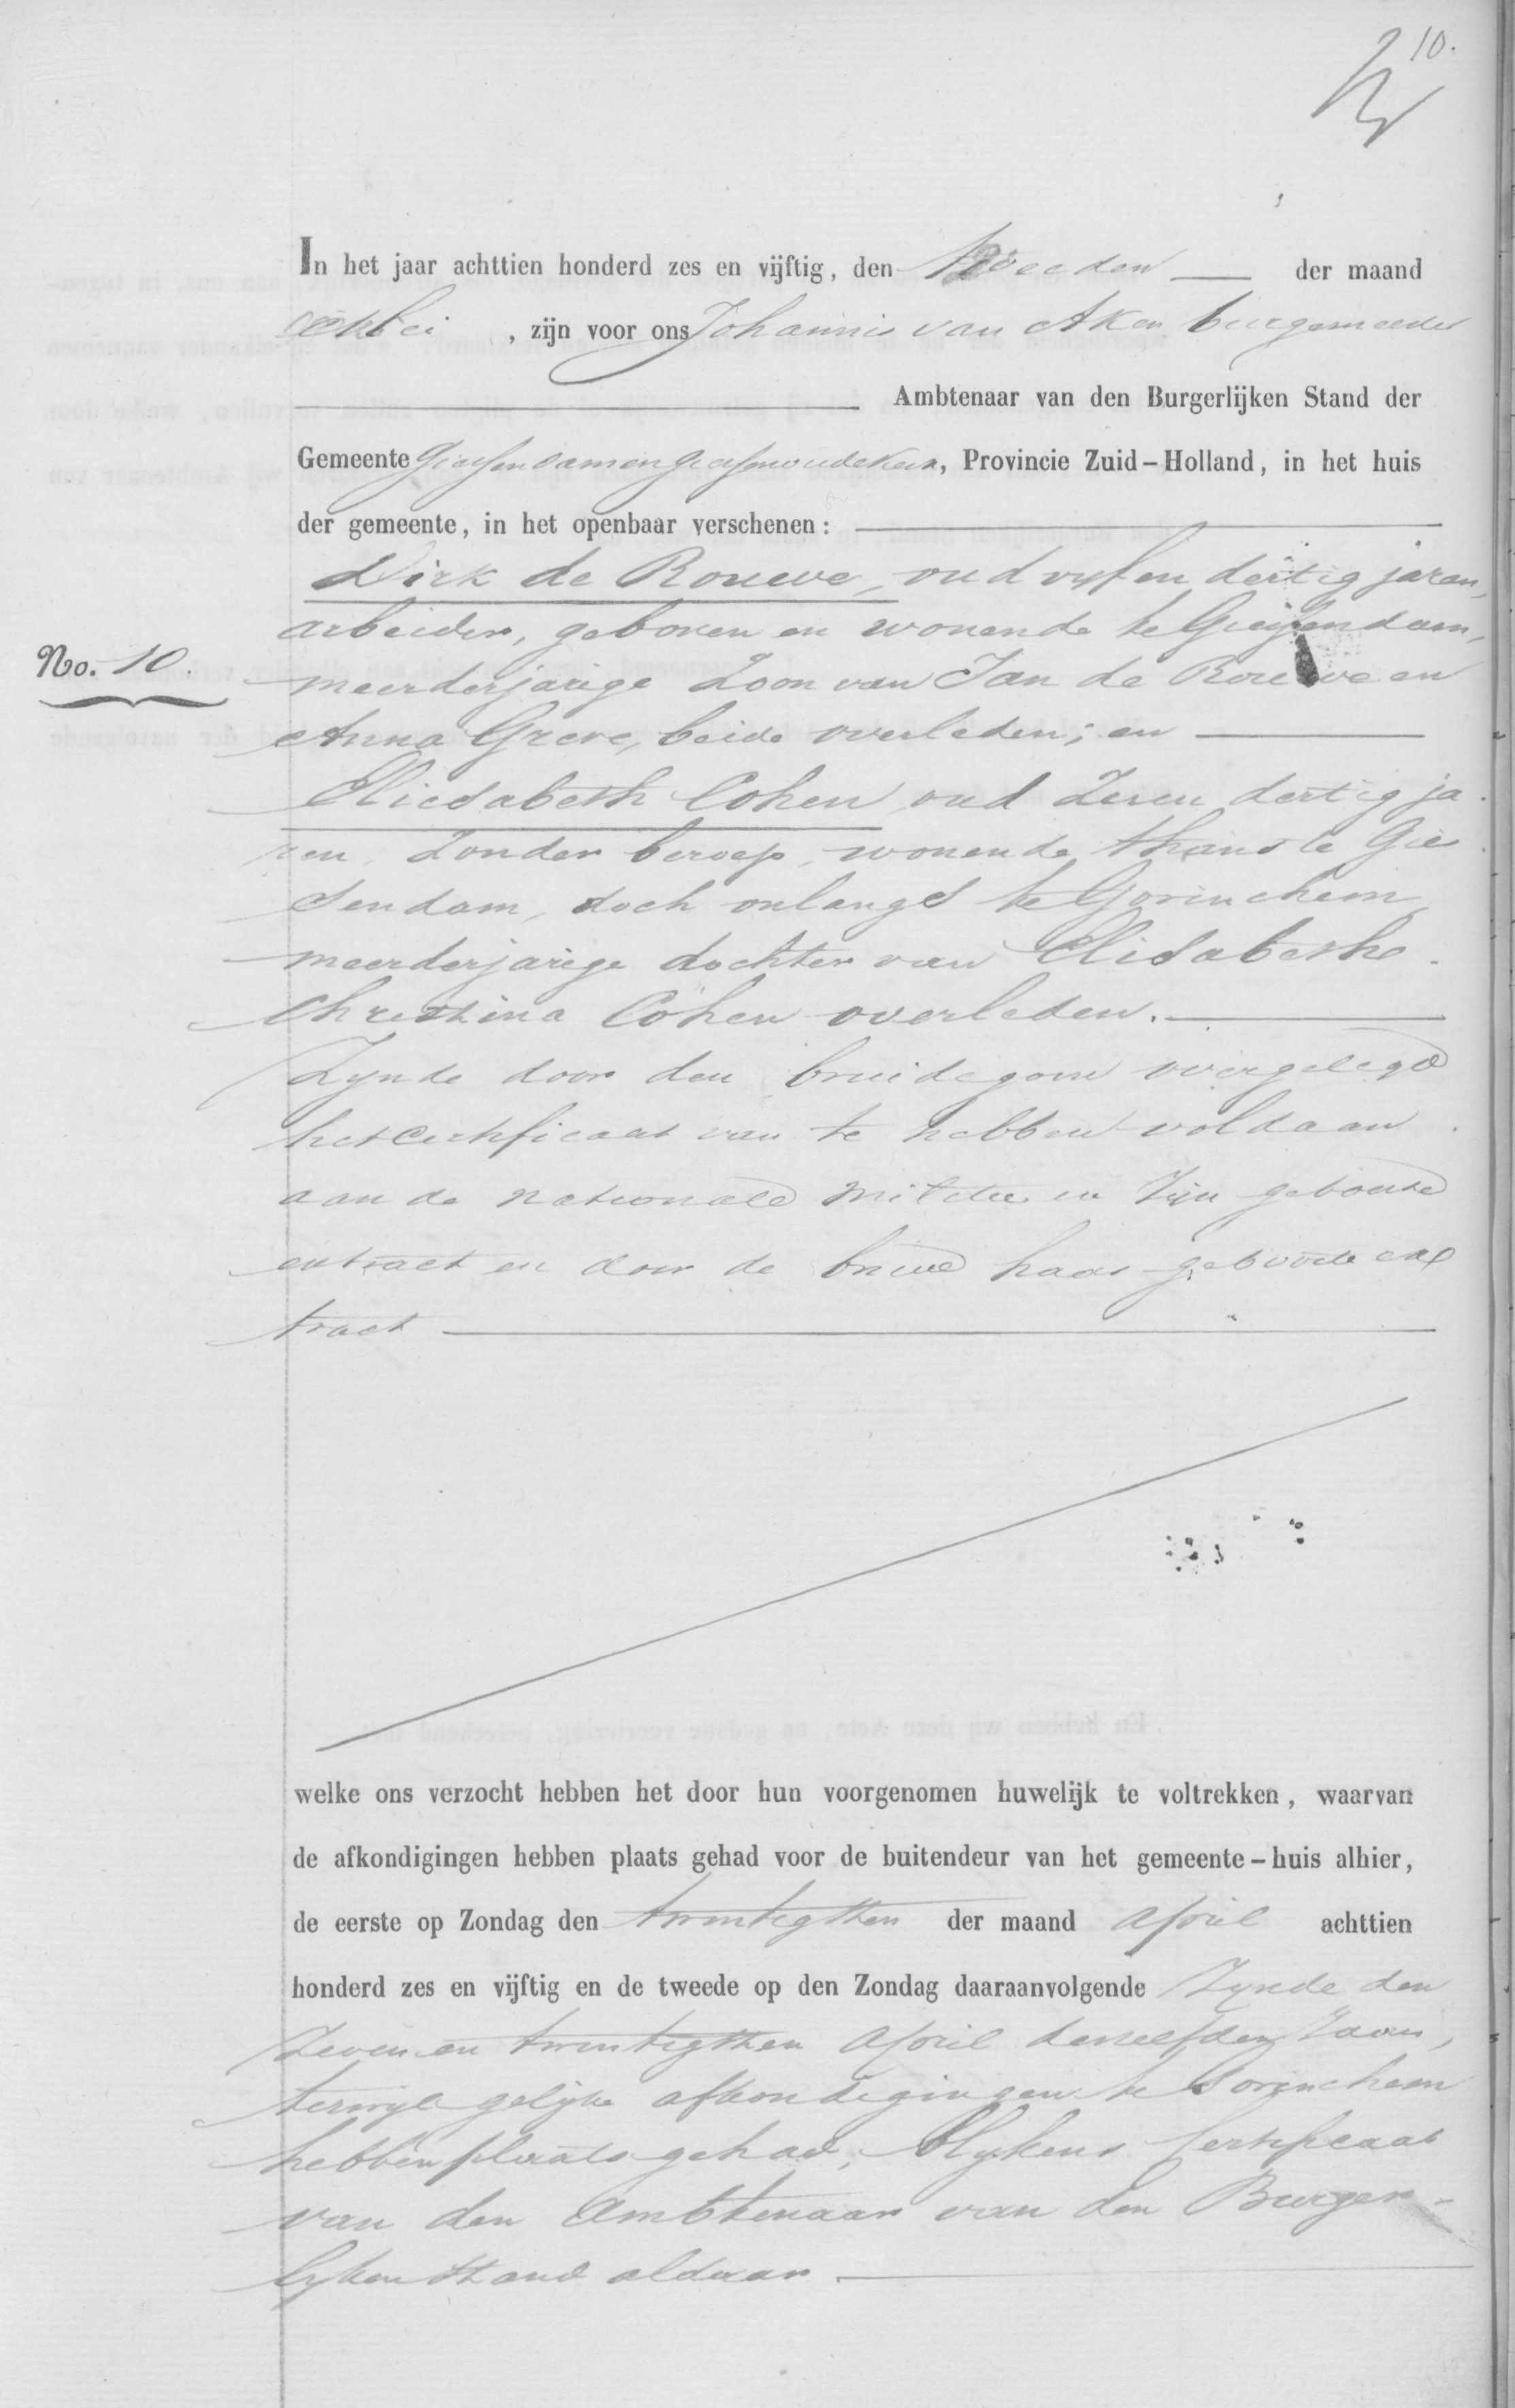 10.
In het jaar achttien honderd zes en vijftig, den Tweeden der maand
Mei, zijn voor ons Johannis van Aken burgemeester
Ambtenaar van den Burgerlijken Stand der
Gemeente Giessendam en Giessenoudekerk, Provincie Zuid-Holland, in het huis
der gemeente, in het openbaar verschenen:
Dirk de Rouwe, oud vyf en dertig jaren,
arbeider, geboren en wonende te Giessendam,
No. 10.
meerderjarige Zoon van Jan de Rouwe en
Anna Greve, beide overleden; en
Eliesabeth Cohen oud Zeven dertig ja
ren, Zonder beroep, wonende thans te Gies
sendam, doch onlangs te Gorinchem,
meerderjarige dochter van Elisabethe
Christina Cohen overleden.
Zynde door den bruidegom overgelegd
het Certificaat van te hebben voldaan
aan de nationale militie en Zijn geboorte
extract en door de bruid haar geboorte ex
tract
welke ons verzocht hebben het door hun voorgenomen huwelijk te voltrekken, waarvan
de afkondigingen hebben plaats gehad voor de buitendeur van het gemeente-huis alhier,
de eerste op Zondag den twintigsten der maand April achttien
honderd zes en vijftig en de tweede op den Zondag daaraanvolgende Zynde den
Zeven en twintigsten April deszelfden Jaars,
terwyl gelyke afkondigingen te Gorinchem
hebben plaats gehad, blykens Certificaat
van den Ambtenaar van den Burger-
lyken Stand aldaar.